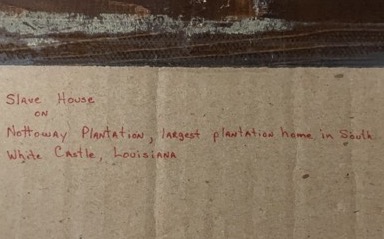 Slave House
ON
Nottoway Plantation, largest plantation home in South.
White Castle, Louisiana